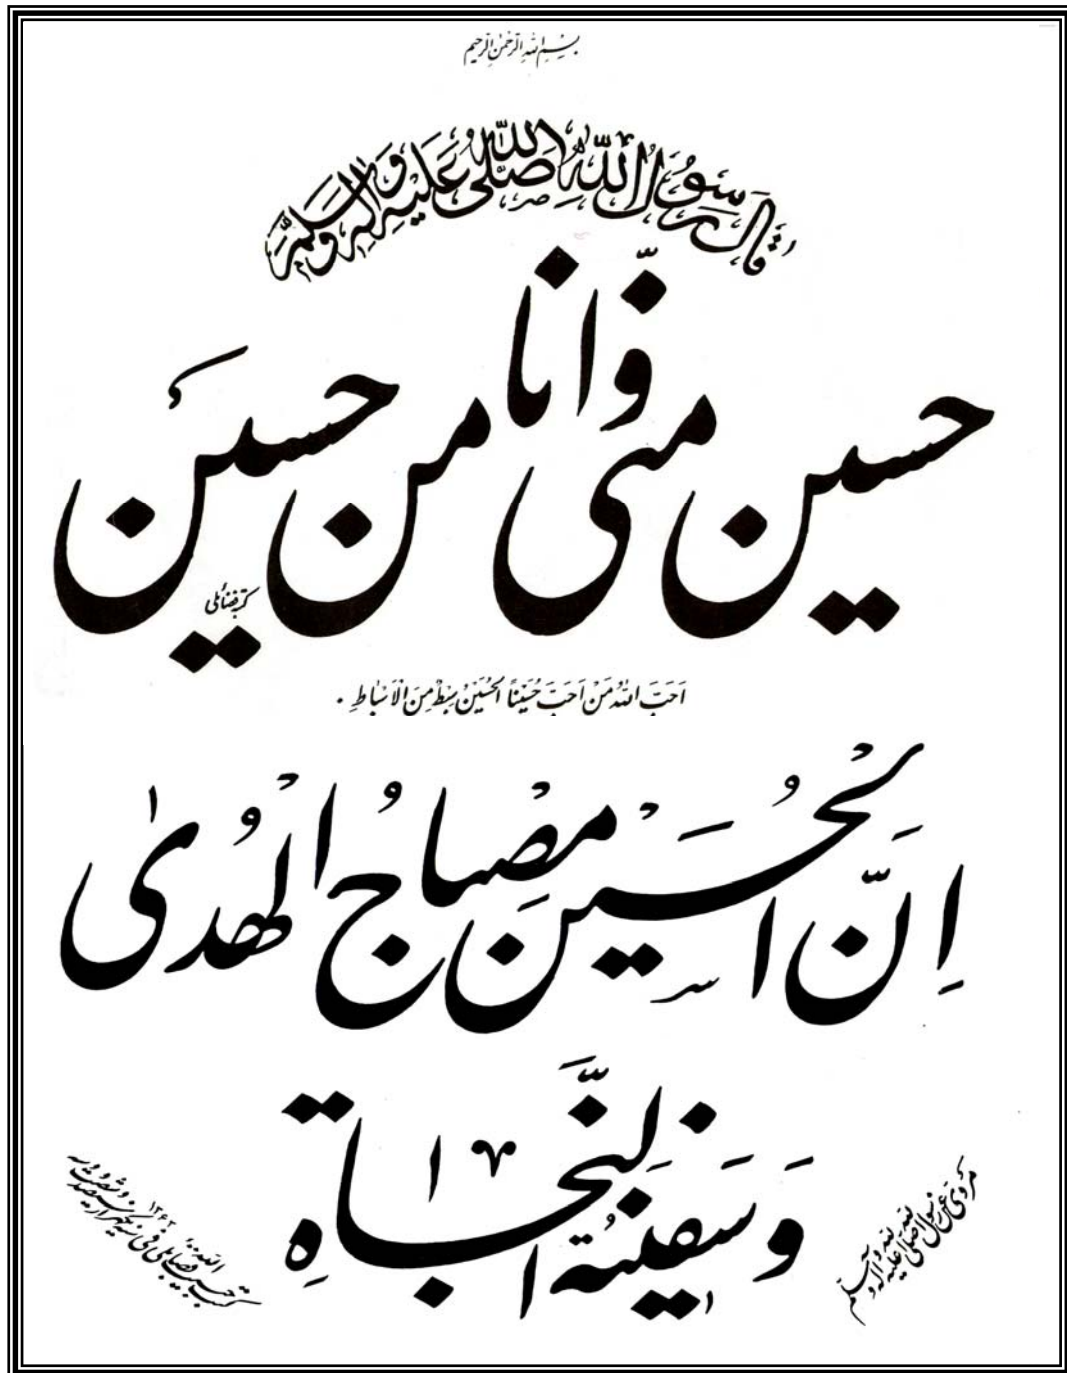 بِسْمِ اللهِ الرَّحْمٰنِ الرَّحِيمِ
قَالَ رَسُولُ اللهِ صَلَّى اللهُ عَلَيْهِ وَاٰلِهِ وَسَلَّمَ
حسین منی وّانا من حسین
کتبه فضائلی
اَحَبَّ اللهُ مَنْ اَحَبَّ حُسَيْناً الْحُسَيْنُ سِبْطٌ مِنَ الْاَسْبَاطِ .
اِنَّ الْحُسَیْن مِصْباحُ الْهُدیٰ
وَسَفینَةُ النَّجاةِ
مروی عن رسول الله صلی الله علیه و آله وسلم
کتبه حبیب الله فضایلی فی سنه
۱۳۶۲